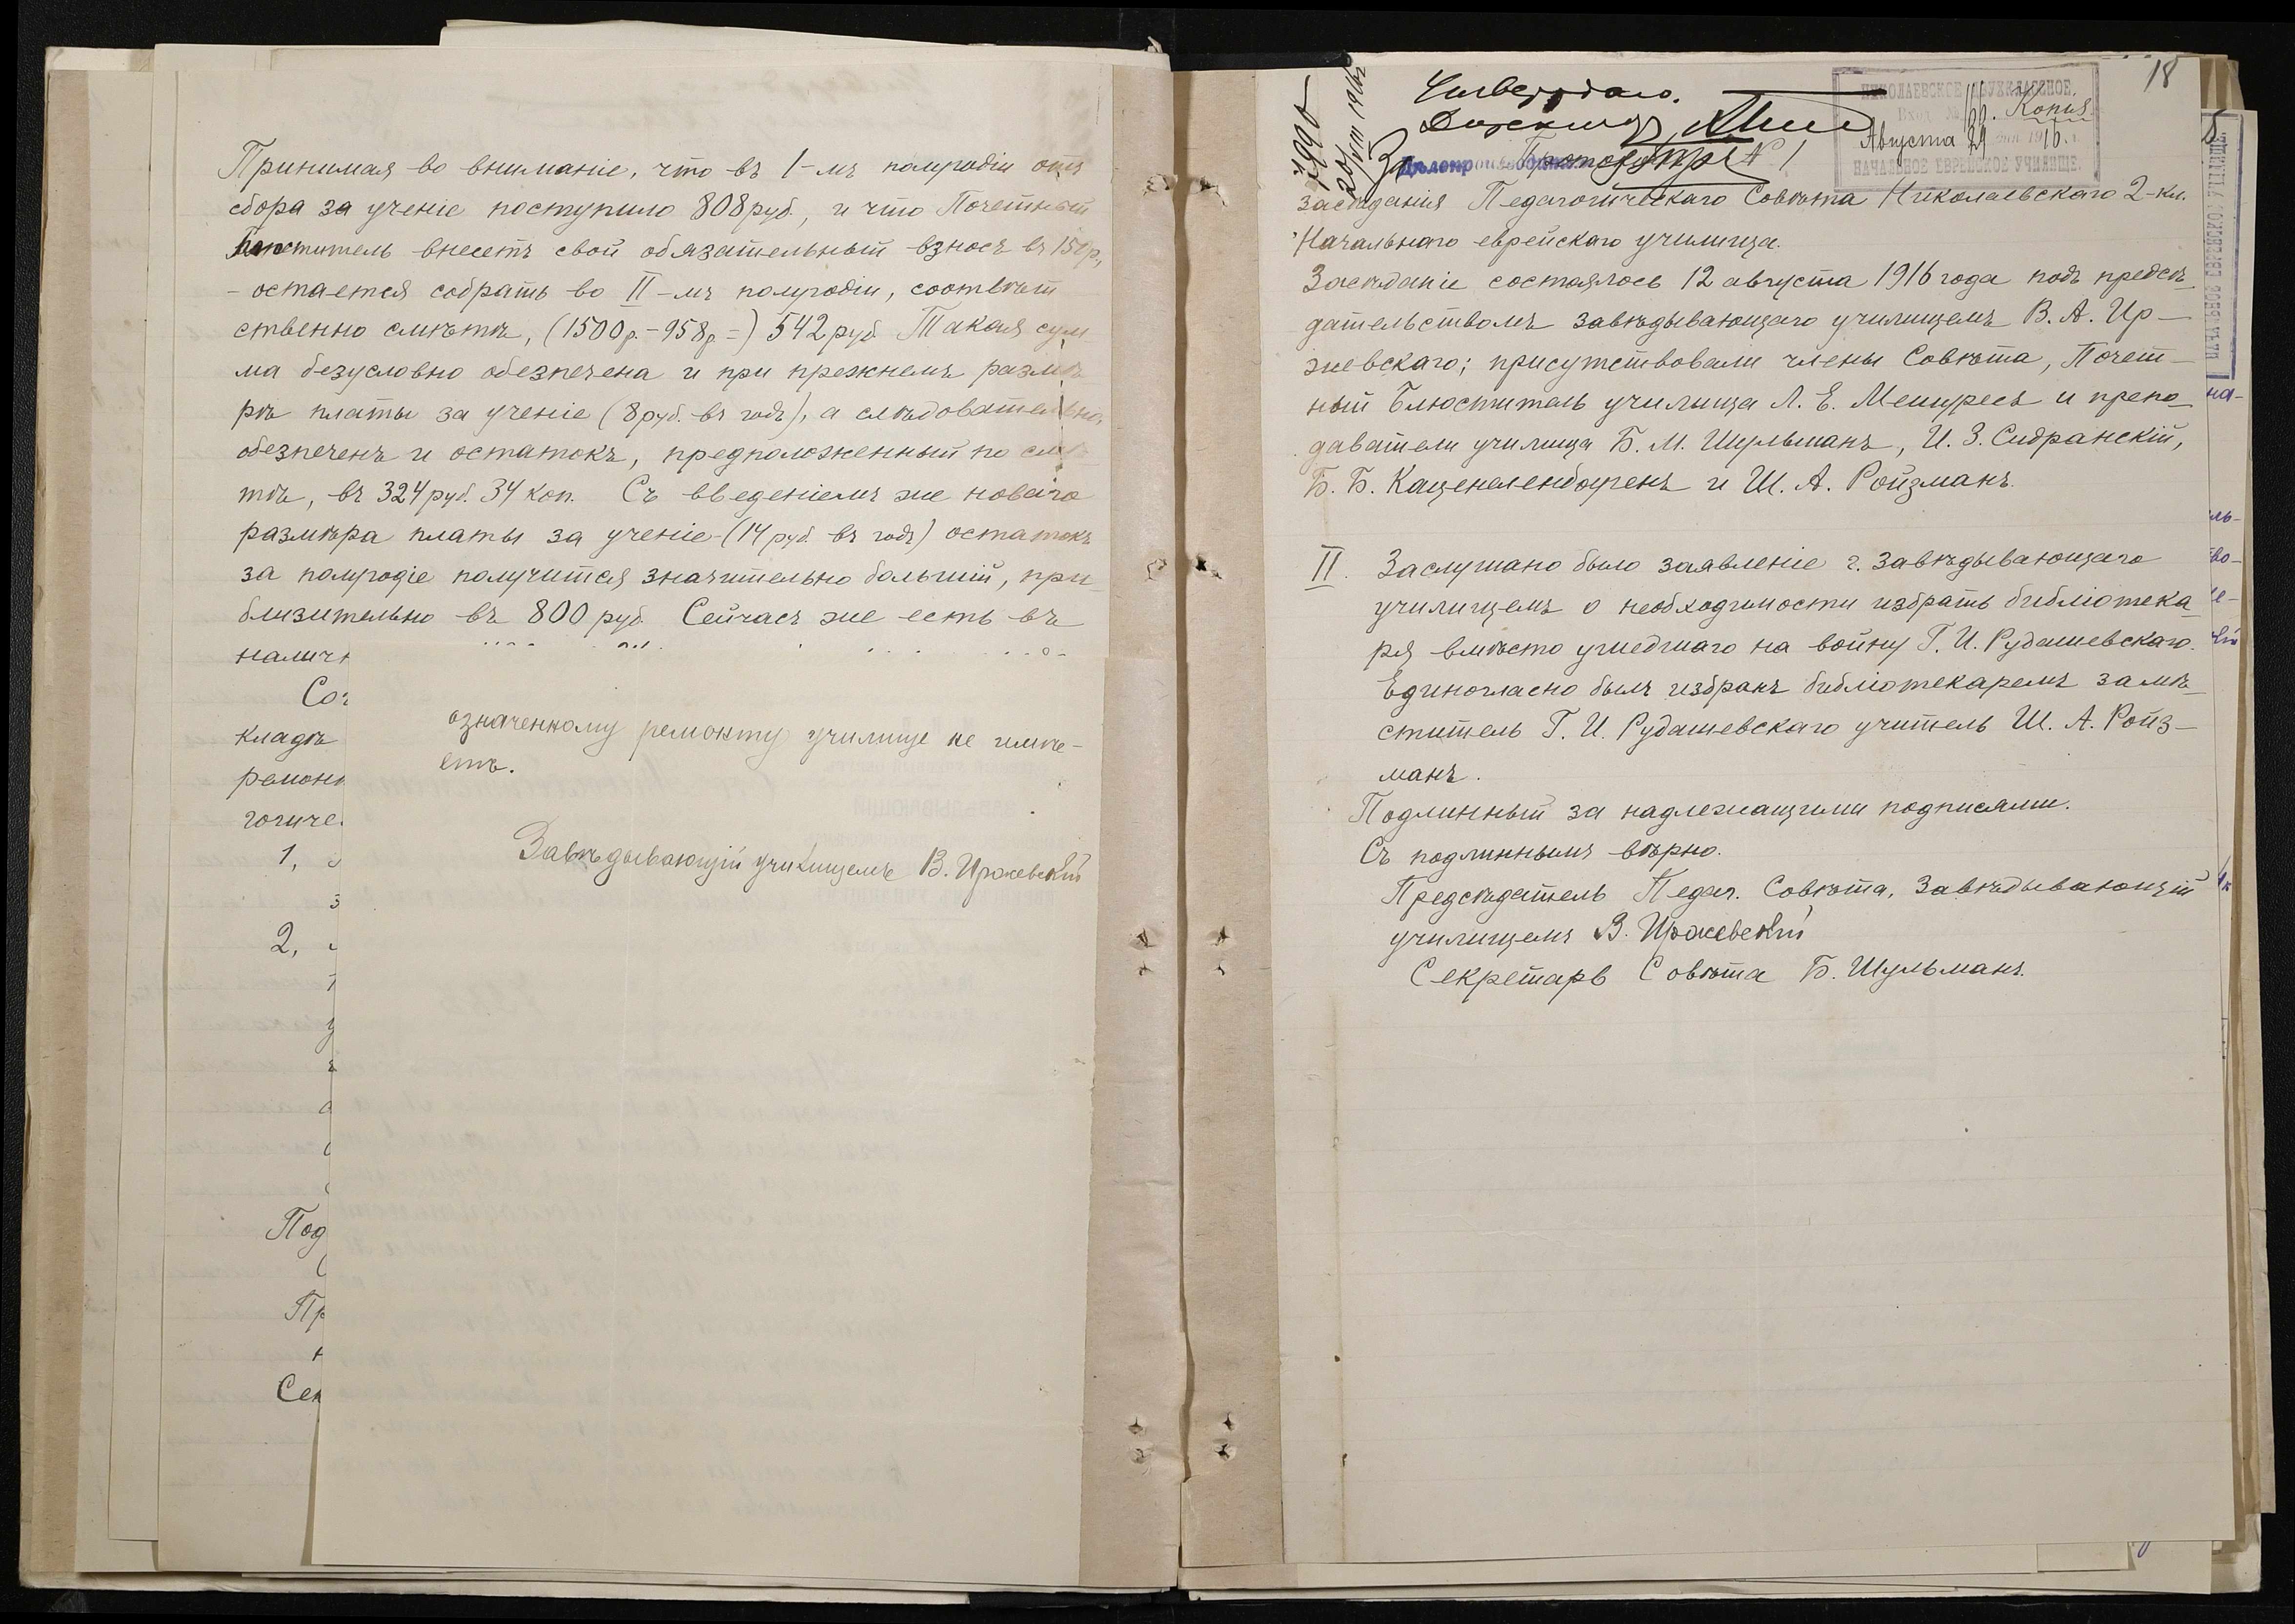 Принимая во вниманіе, что въ 1-мъ полугодіи отъ
сбора за ученіе поступило 808 руб., и что Почетный
Блюститель внесетъ свой обязательный взносъ въ 150 р.,
- остается собрать во II-мъ полугодіи, соотвѣт
ственно смѣтѣ, (1500 р. - 958 р =) 542 руб. Такая сум
ма безусловно обезпечена и при прежнемъ размѣ
рѣ платы за ученіе (8 руб. въ годъ), а слѣдовательно,
обезпеченъ и остатокъ, предположенный по смѣ
тѣ, въ 324 руб. 34 коп. Съ введеніемъ же новаго
размѣра платы за ученіе (14 руб. въ годъ) остатокъ
за полугодіе получится значительно большій, при
близительно въ 800 руб. Сейчасъ же есть въ
кладѣ
ремон
гогиче
1,
2,
Под
Пр
Сек
означенному ремонту училище не имѣ-
етъ.
Завѣдывающій училищемъ В. Иржевскій
18
Утверждаю.
Директоръ
НИКОЛАЕВСКОЕ ДВУХКЛАССНОЕ
Вход. № 160. Копия
Августа 29 дня 1916 г.
НАЧАЛЬНОЕ ЕВРЕЙСКОЕ УЧИЛИЩЕ.
Протоколъ № 1
засѣданія Педагогическаго Совѣта Николаевскаго 2-кл.
Начальнаго еврейскаго училища.
Засѣданіе состоялось 12 августа 1916 года подъ предсѣ
дательствомъ завѣдывающаго училищемъ В. А. Ир-
жевскаго; присутствовали члены Совѣта, Почет-
ный Блюститель училища Л. Е. Мешуресъ и препо
даватели училища Б. М. Шульманъ, И. З. Сидранскій,
Б. Б. Каценеленбогенъ и Ш. А. Ройзманъ.
II. Заслушано было заявленіе г. Завѣдывающаго
училищемъ о необходимости избрать библіотека
ря вмѣсто ушедшаго на войну Г. И. Рудашевскаго.
Единогласно былъ избранъ библіотекаремъ замѣ
ститель Г. И. Рудашевскаго учитель Ш. А. Ройз-
манъ.
Подлинный за надлежащими подписями.
Съ подлиннымъ вѣрно.
Предсѣдатель Педаг. Совѣта, Завѣдывающій
училищемъ В. Иржевскій
Секретарь Совѣта Б. Шульманъ.